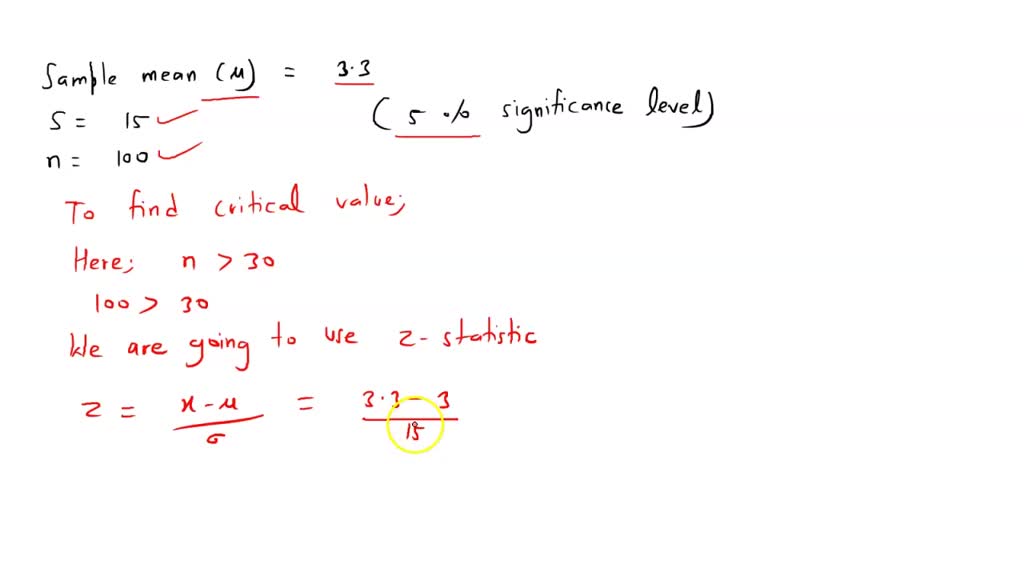 Sample mean (μ) = 3.3
S = 15
(5 % significance level)
n = 100
To find critical value;
Here; n > 30
100 > 30
We are going to use z-statistic
z = x - μ / σ = 3.3 - 3 / 15